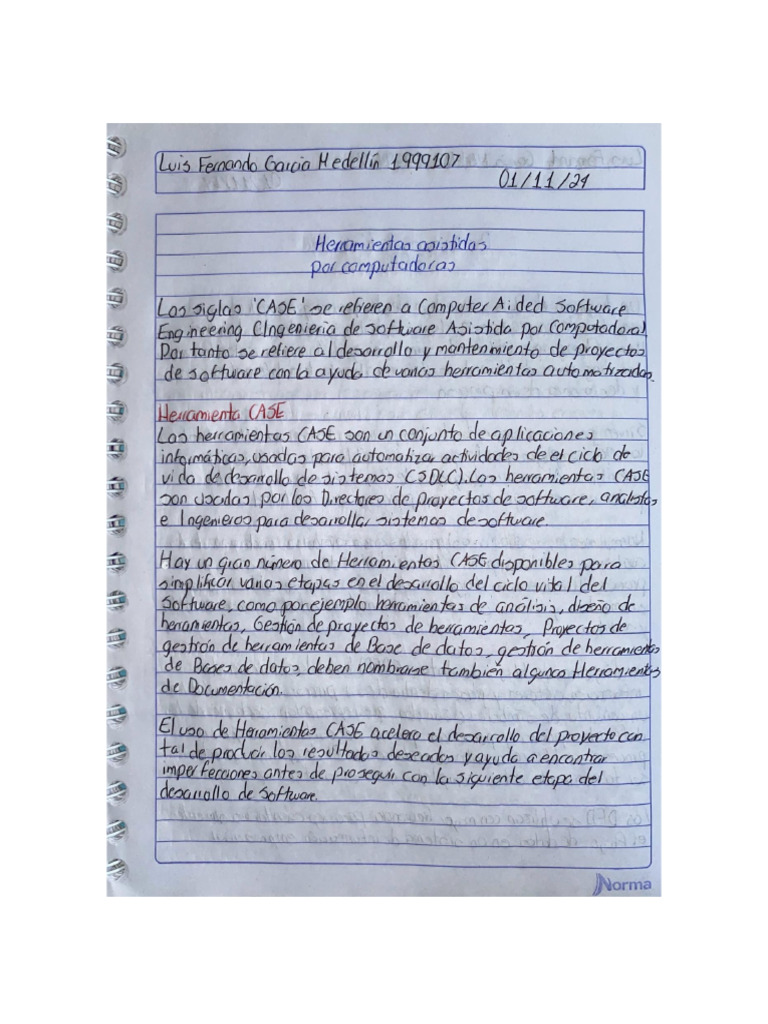 Luis Fernando Garcia Medellín 1999107
01/11/24
Herramientas asistidas
por computadoras
Las siglas 'CASE' se refieren a Computer Aided Software
Engineering (Ingenieria de software Asistida por Computadora)
Por tanto se refiere al desarrollo y mantenimiento de proyectos
de software con la ayuda de varias herramientas automatizadas.
Herramienta CASE
Las herramientas CASE son un conjunto de aplicaciones
informáticas, usadas para automatizar actividades de el ciclo de
vida de desarrollo de sistemas (SDLC). Las herramientas CASE
son usadas por los Directores de proyectos de software, analistas
e Ingenieros para desarrollar sistemas de software.
Hay un gran número de Herramientas CASE disponibles para
simplificar varias etapas en el desarrollo del ciclo vital del
Software, como por ejemplo herramientas de análisis, diseño de
herramientas, Gestión de proyectos de herramientas, Proyectos de
gestión de herramientas de Base de datos, gestión de herramientas
de Bases de datos, deben nombrarse también algunas Herramientas
de Documentación.
El uso de Herramientas CASE acelera el desarrollo del proyecto con
tal de producir los resultados deseados y ayuda a encontrar
imperfecciones antes de proseguir con la siguiente etapa del
desarrollo de Software.
Norma